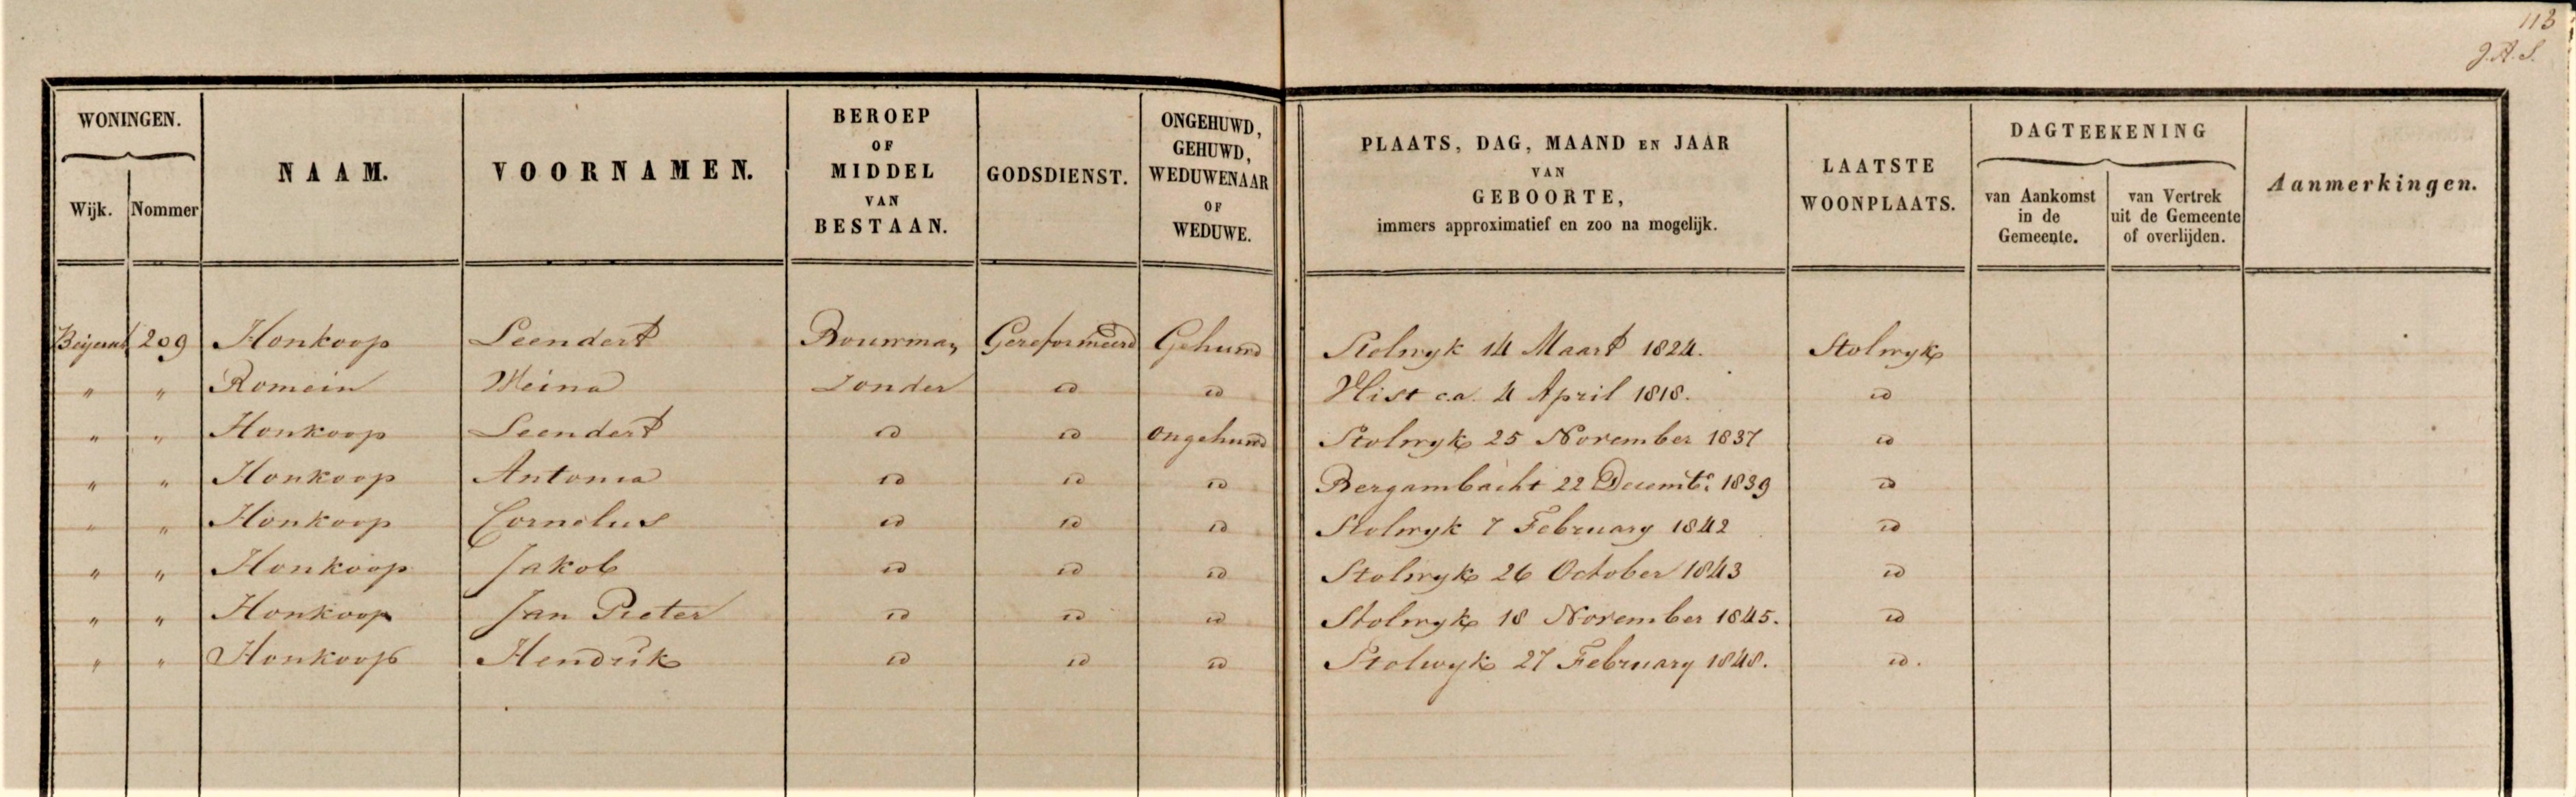 113
J.A.S.
WONINGEN.
Wijk. Nommer
NAAM.
VOORNAMEN.
BEROEP
OF
MIDDEL
VAN
BESTAAN.
GODSDIENST.
ONGEHUWD,
GEHUWD,
WEDUWENAAR
OF
WEDUWE.
PLAATS, DAG, MAAND EN JAAR
VAN
GEBOORTE,
immers approximatief en zoo na mogelijk.
LAATSTE
WOONPLAATS.
DAGTEEKENING
van Aankomst
in de
Gemeente.
van Vertrek
uit de Gemeente
of overlijden.
Aanmerkingen.
209 Honkoop Leendert Bouwman Gereformeerd Gehuwd Stolwyk 14 Maart 1824. Stolwyk
" " Romein Weina Zonder id id Vlist c.a. 4 April 1818. id
" " Honkoop Leendert id id ongehuwd Stolwyk 25 November 1837 id
" " Honkoop Antonia id id id Bergambacht 22 Decembr. 1839 id
" " Honkoop Cornelus id id id Stolwyk 7 February 1842 id
" " Honkoop Jakob id id id Stolwyk 26 October 1843 id
" " Honkoop Jan Pieter id id id Stolwyk 18 November 1845. id
" " Honkoop Hendrik id id id Stolwyk 27 February 1848. id.